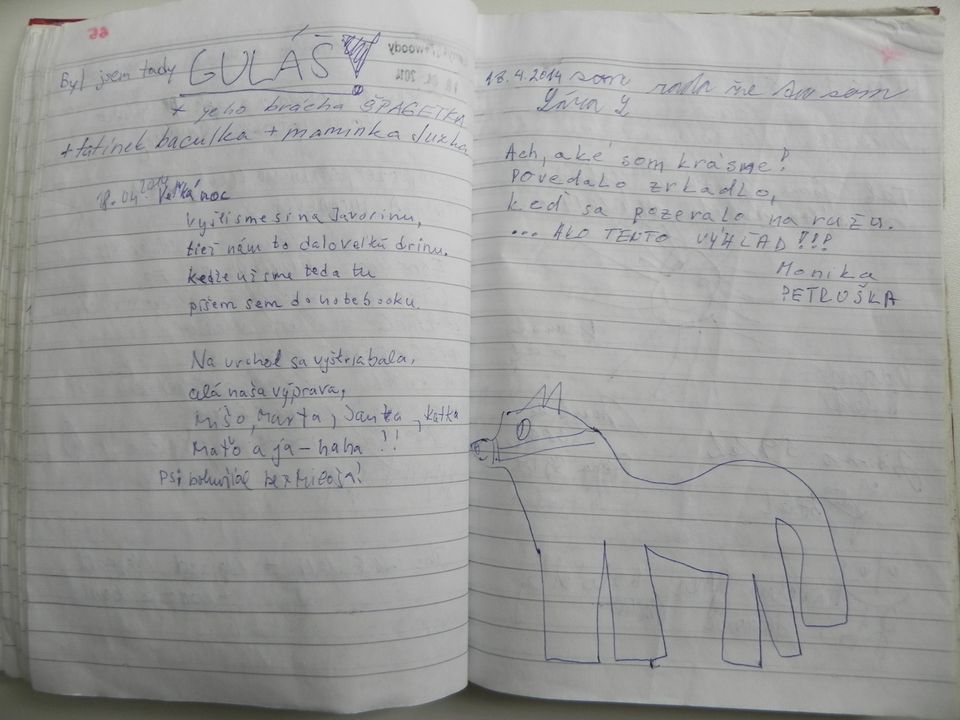 66
Byl jsem tady GULÁŠ!
+ jeho brácha ŠPAGETKA
+ tatínek baculka + maminka Juxha
18.04.2014 Veľká noc
vyšli sme si na Javorinu,
tiež nám to dalo veľkú drinu.
keďže už sme teda tu
píšem sem do notebooku.
Na vrchol sa vyštriabala,
celá naša výprava,
Mišo, Marta, Janka, Katka
Maťo a ja - haha !!
PS: bohužiaľ bez Miloša!
18.4.2014 som rada že su som
Ach, aké som krásne!
povedalo zrkadlo,
keď sa pozeralo na ružu.
... AKO TENTO VÝHĽAD!!!
Monika
PETRUŠKA